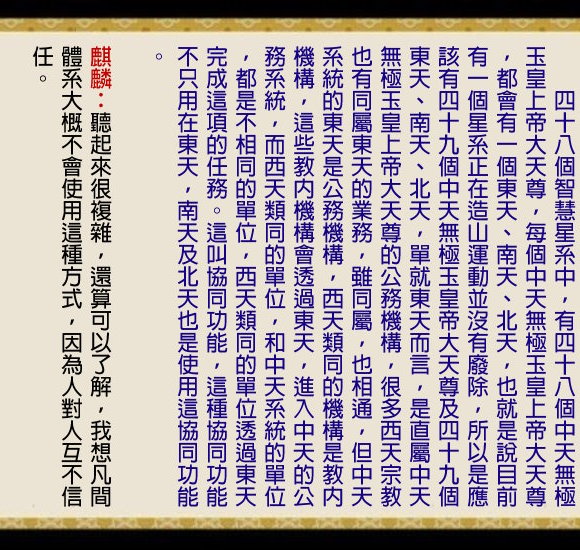 四十八個智慧星系中，有四十八個中天無極
玉皇上帝大天尊，每個中天無極玉皇上帝大天尊
，都會有一個東天、南天、北天，也就是說目前
有一個星系正在造山運動並沒有廢除，所以是應
該有四十九個中天無極玉皇帝大天尊及四十九個
東天、南天、北天，單就東天而言，是直屬中天
無極玉皇上帝大天尊的公務機構，很多西天宗教
也有同屬東天的業務，雖同屬，也相通，但中天
系統的東天是公務機構，西天類同的機構是教内
機構，這些教内機構會透過東天，進入中天的公
務系統，而西天類同的單位，和中天系統的單位
，都是不相同的單位，西天類同的單位透過東天
完成這項的任務。這叫協同功能，這種協同功能
不只用在東天，南天及北天也是使用這協同功能
。
麒麟：聽起來很複雜，還算可以了解，我想凡間
體系大概不會使用這種方式，因為人對人互不信
任。